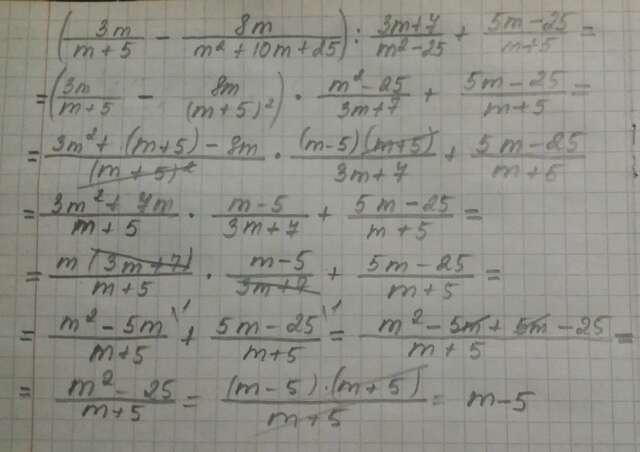 (3m/(m+5) - 8m/(m²+10m+25)) : (3m+7)/(m²-25) + (5m-25)/(m+5) =
= (3m/(m+5) - 8m/(m+5)²) · (m²-25)/(3m+7) + (5m-25)/(m+5) =
= (3m²+(m+5)-8m)/(m+5)² · (m-5)(m+5)/(3m+7) + (5m-25)/(m+5)
= (3m²+7m)/(m+5) · (m-5)/(3m+7) + (5m-25)/(m+5) =
= m(3m+7)/(m+5) · (m-5)/(3m+7) + (5m-25)/(m+5) =
= (m²-5m)/(m+5) \1 + (5m-25)/(m+5) \1 = (m²-5m+5m-25)/(m+5) =
= (m²-25)/(m+5) = (m-5)·(m+5)/(m+5) = m-5